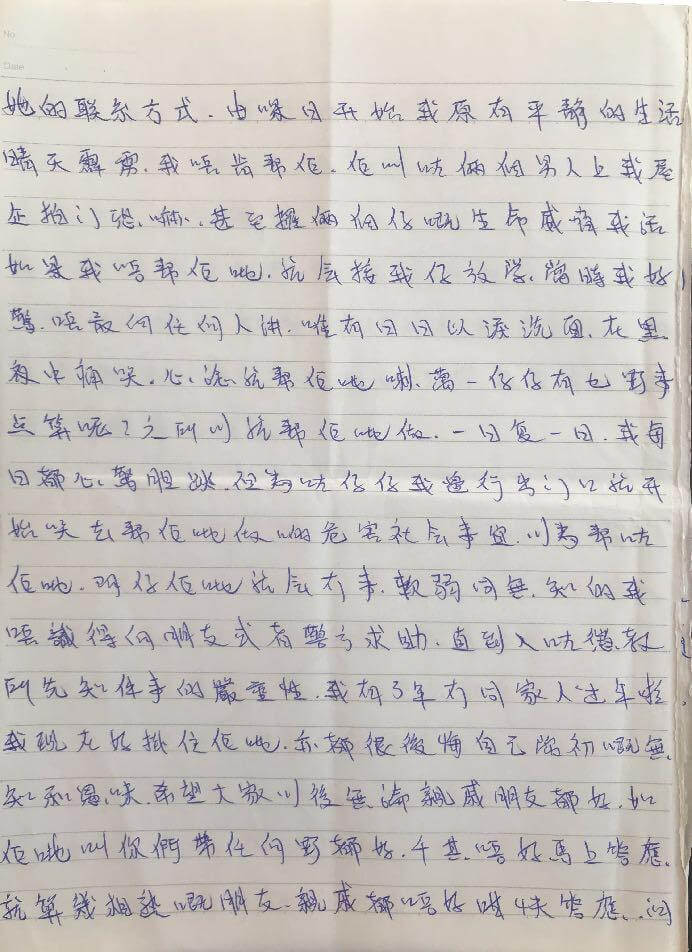 No
Date
她的联系方式．由嗰日开始我原有平靜的生活
晴天霹雳．我唔肯帮佢．佢叫咗俩個男人上我屋
企拍门恐嚇．甚至攞俩個仔嘅生命威脅我話
如果我唔帮佢哋．就会接我仔放学．當時我好
驚．唔敢向任何人讲．唯有日日以淚洗面．在黑
夜中痛哭．心諗就帮佢哋喇．萬一仔仔有乜野事
点算呢？之所以就帮佢哋做．一日复一日．我每
日都心驚胆跳．但為咗仔仔我進行出门口就开
始哭去帮佢哋做啲危害社会事宜．以為帮咗
佢哋．阿仔佢哋就会冇事．軟弱同無知的我
唔識得向朋友或者警方求助．直到入咗懲教
所先知件事的嚴重性．我有3年冇同家人过年啦
我现在好掛住佢哋．亦都很後悔自己當初嘅無
知和愚昧．希望大家以後無論親戚朋友都好．如
佢哋叫你們带任何野都好．千萬唔好馬上答應．
就算幾相熟嘅朋友．親戚都唔好 答應．